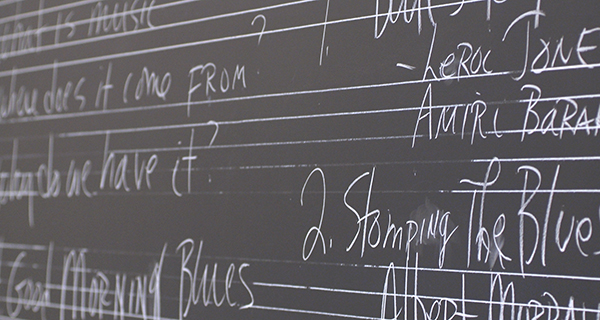 what is music
where does it come FROM?
why do we have it?
Good MORNING Blues
1.
- LeROI JONE
AMIRI BARAK
2. Stomping The Blues
Albert MURRA